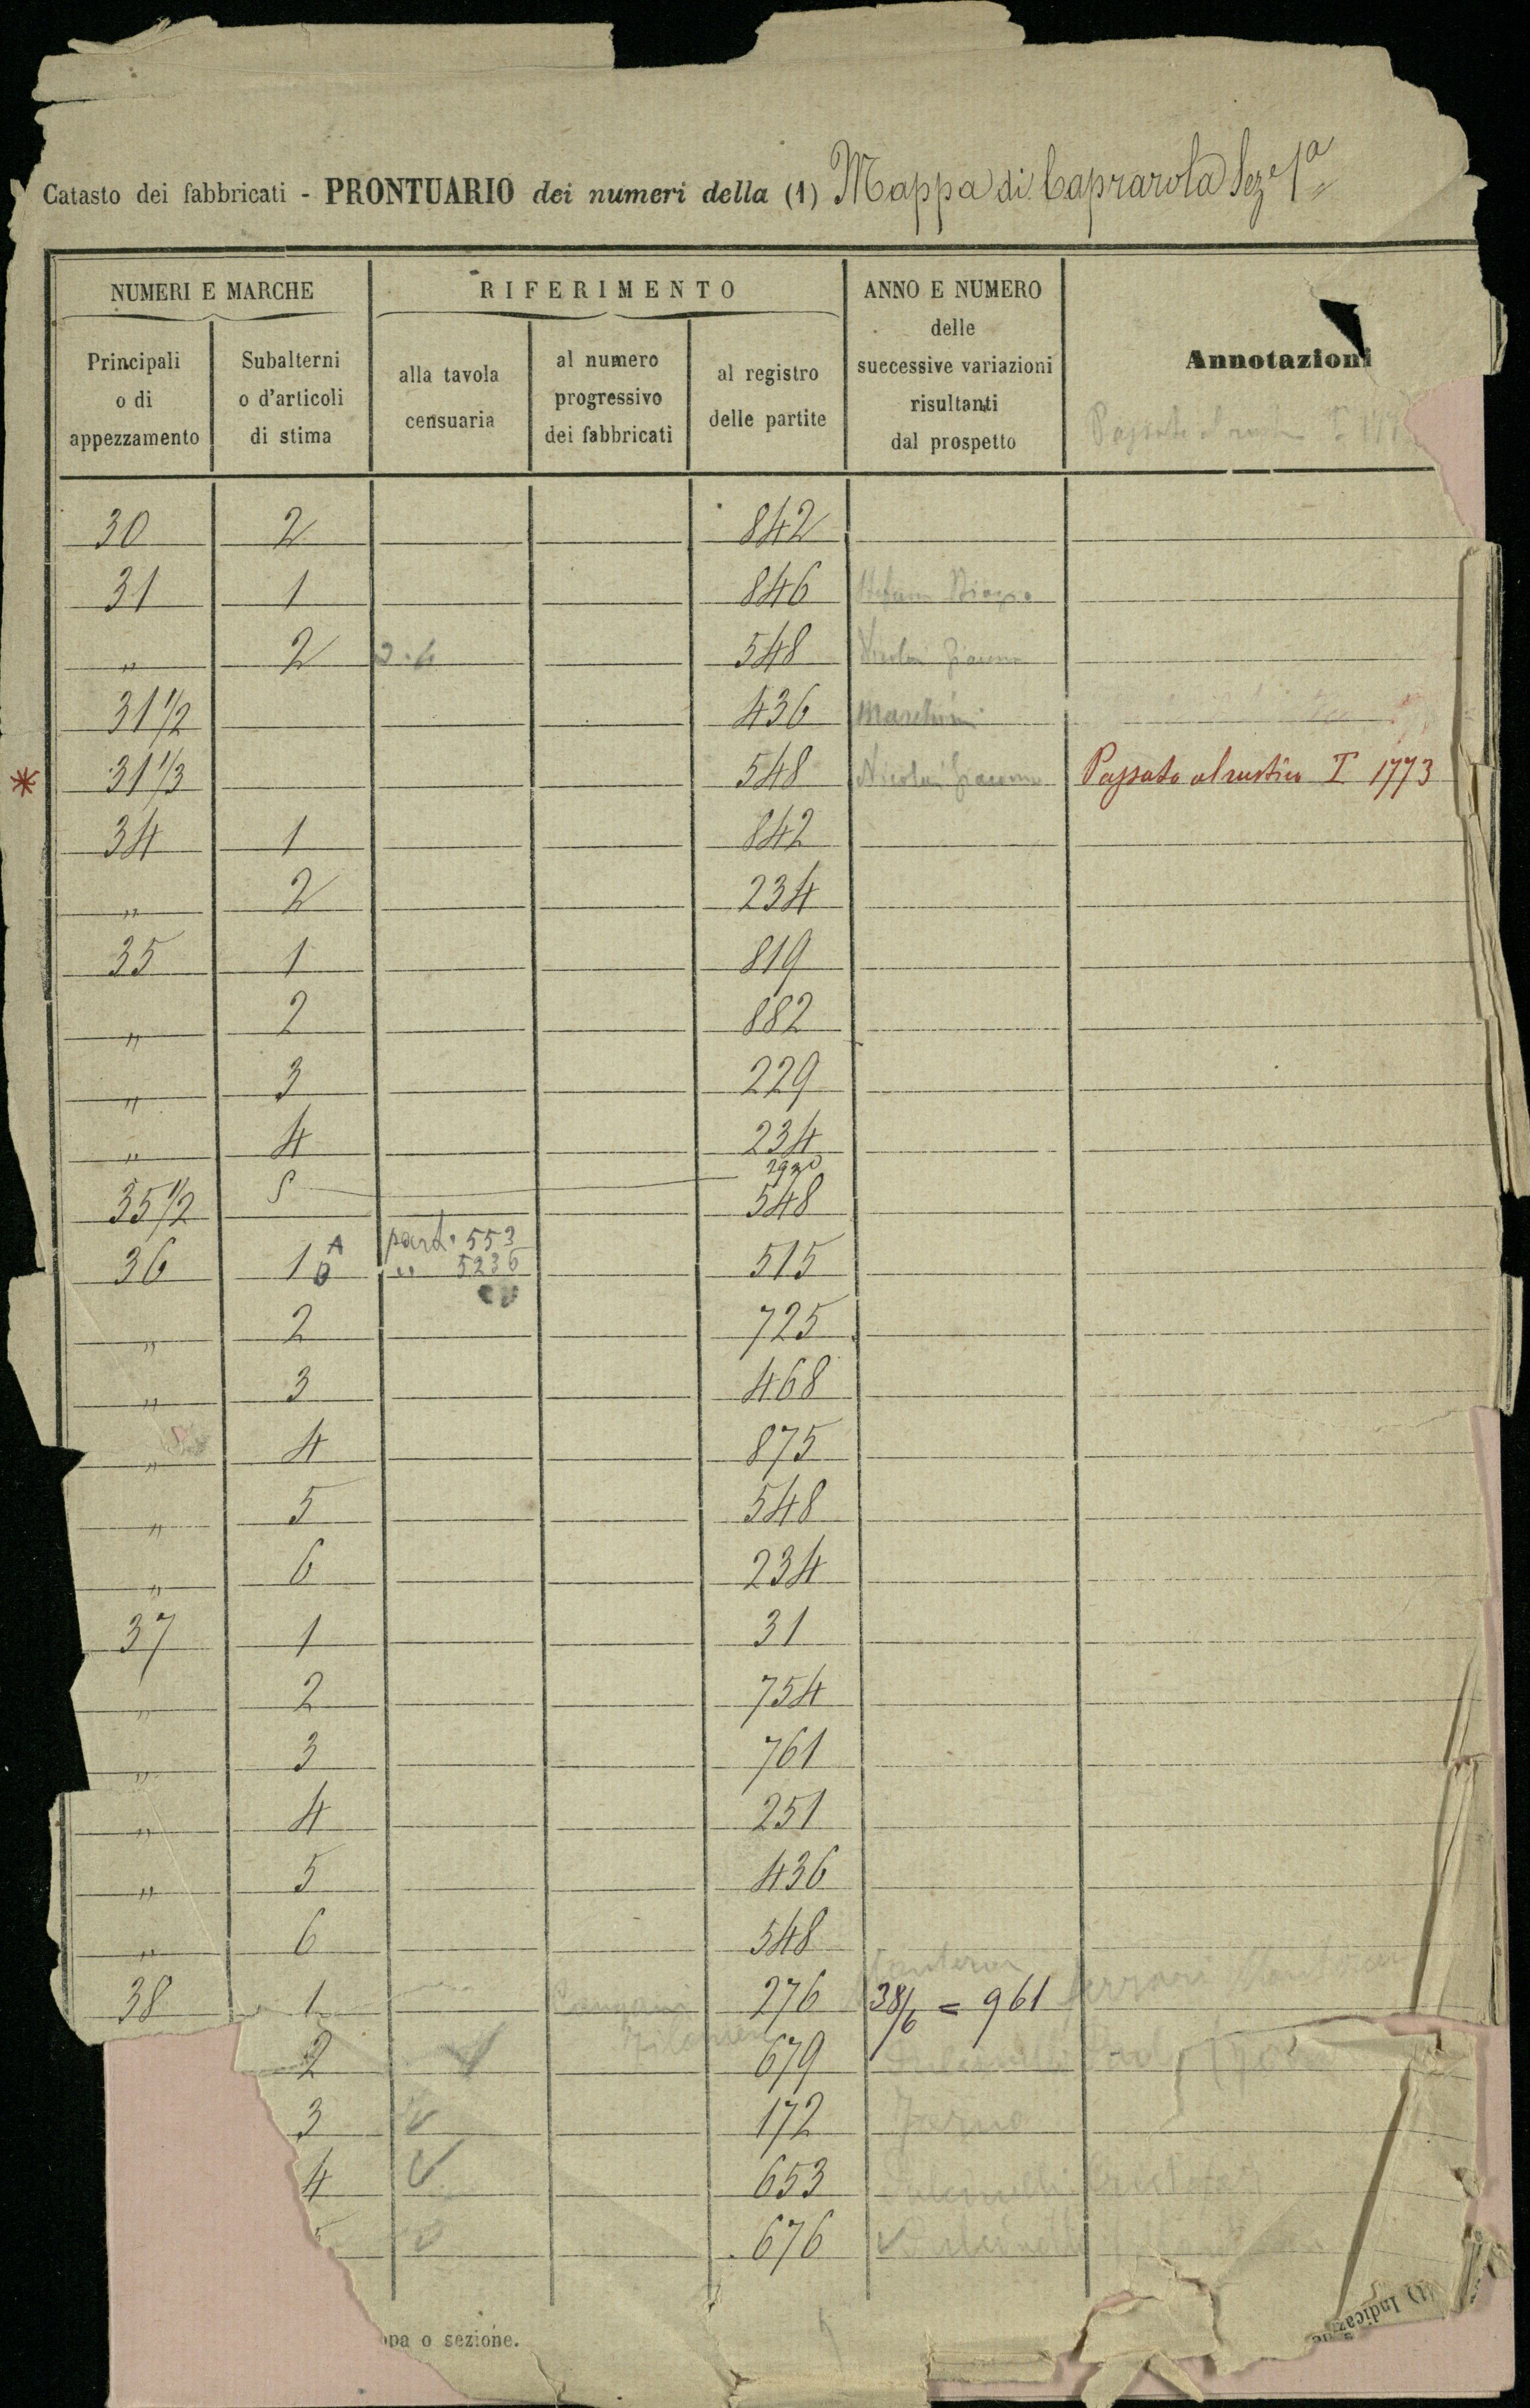 Catasto dei fabbricati - PRONTUARIO dei numeri della (1) Mappa di Caprarola Sez.e 1a
NUMERI E MARCHE
RIFERIMENTO
ANNO E NUMERO
delle
successive variazioni
risultanti
dal prospetto
Annotazioni
Principali
o di
appezzamento
Subalterni
o d'articoli
di stima
alla tavola
censuaria
al numero
progressivo
dei fabbricati
al registro
delle partite
Passato al rustico T 177
30 2 842
31 1 846 Stefani
" 2 548 Nicolai Giacomo
31 1/2 436
* 31 1/3 548 Nicolai Giacomo Passato al rustico T 1773
34 1 842
" 2 234
35 1 819
" 2 882
" 3 229
" 4 234
5 2930
35 1/2 548
part. 553
36 1 A b " 5236 515
" 2 725
" 3 468
" 4 875
" 5 548
" 6 234
37 1 31
" 2 754
" 3 761
" 4 251
" 5 436
" 6 548
38 1 276 38/6 = 961
2 679
3 172
4 653
5 676
ppa o sezione.
(1) Indicaz